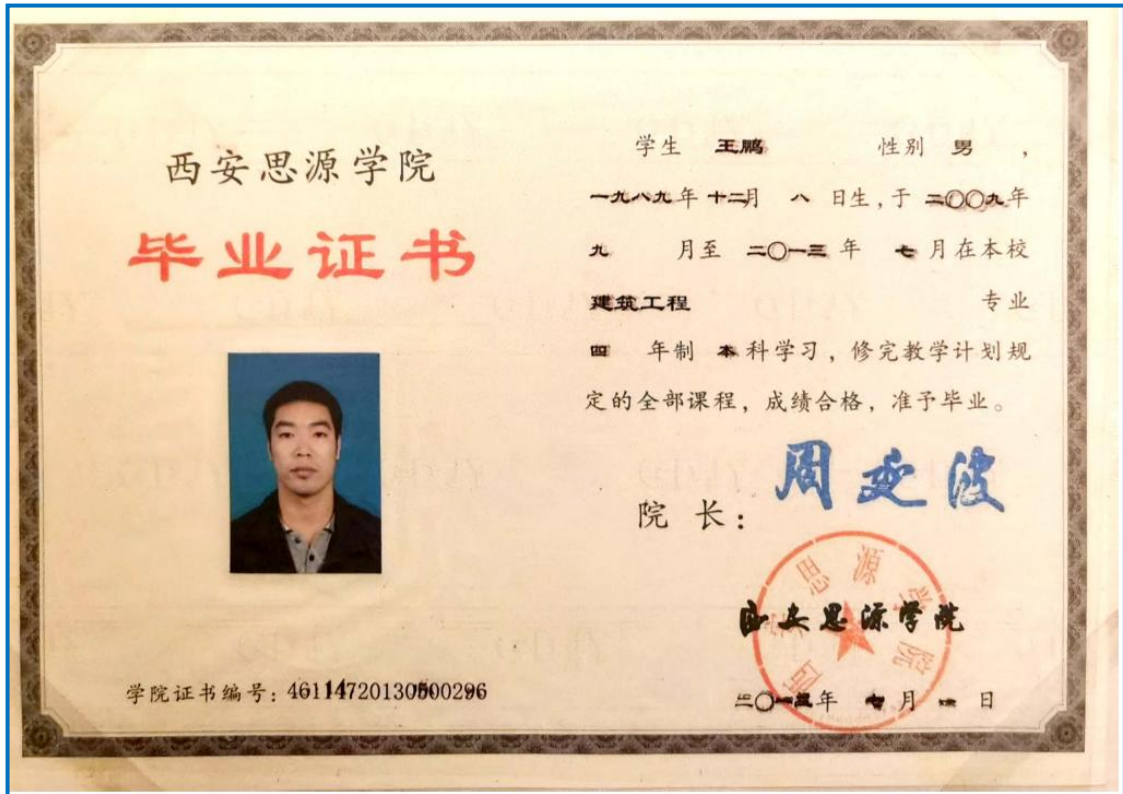 西安思源学院
毕业证书
学院证书编号：46114720130500296
学生 王鹏 性别 男 ，
一九八九年 十二月 八 日生，于 二〇〇九年
九 月至 二〇一三 年 七 月在本校
建筑工程 专业
四 年制 本 科学习，修完教学计划规
定的全部课程，成绩合格，准予毕业。
院 长： 周延波
西安思源学院
西安思源学院
二〇一三年 七 月 一 日